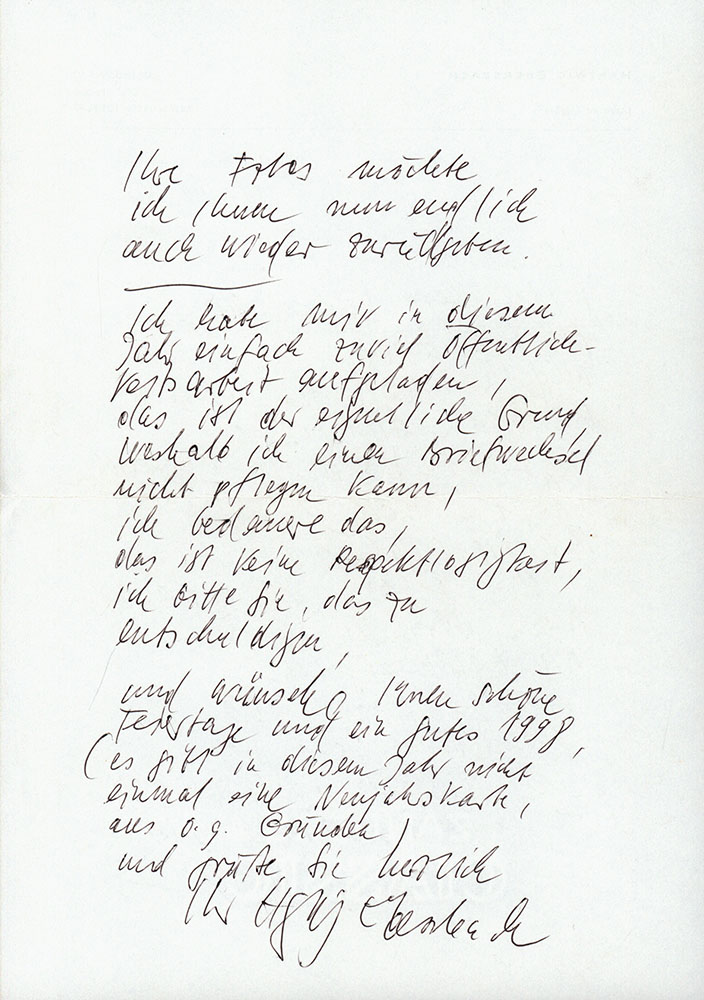 Ihre Fotos möchte
ich Ihnen nun endlich
auch wieder zurückgeben.
Ich habe mir in diesem
Jahr einfach zuviel Öffentlich-
keitsarbeit aufgeladen,
das ist der eigentliche Grund,
weshalb ich einen Briefwechsel
nicht pflegen kann,
ich bedauere das,
das ist keine Respektlosigkeit,
ich bitte Sie, das zu
entschuldigen,
und wünsche Ihnen schöne
Feiertage und ein gutes 1998,
(es gibt in diesem Jahr nicht
einmal eine Neujahrskarte,
aus o.g. Gründen)
und grüße Sie herzlich
Ihr Ebersbach